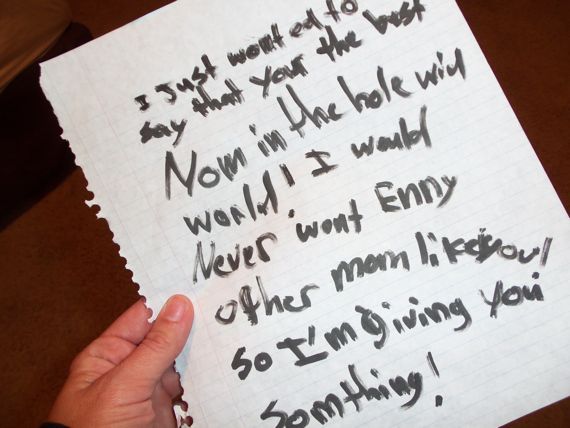 I Just wont ed to
say that your the best
Nom in the hole wid
warld! I would
Never wont Enny
other mom like you!
so I'm giving you
somthing!